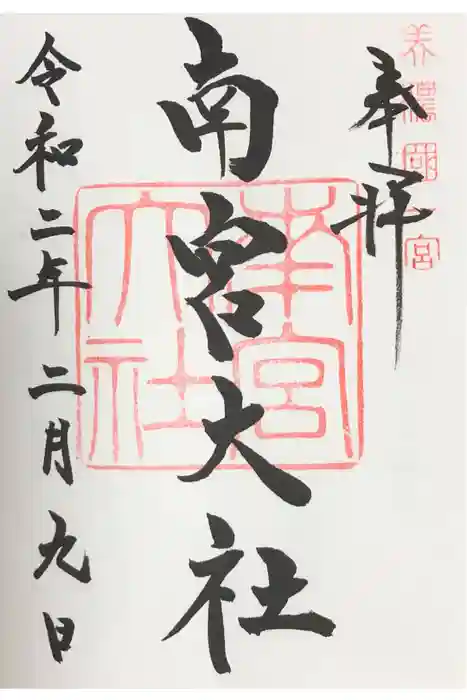 美濃國一宮
奉拝
南宮大社
南宮大社
令和二年二月九日